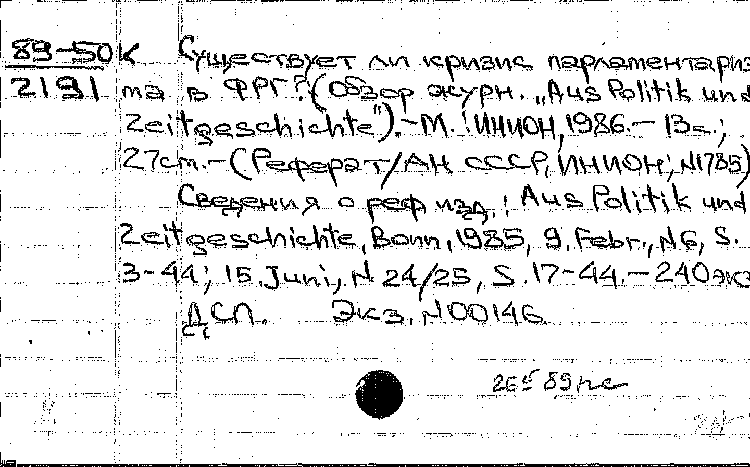 89-50к Существует ли кризис парламентариз
2191 ма в ФРГ? (Обзор журн. „Aus Politik und
Zeitgeschichte").-М.:ИНИОН,1986.-13с.;
27см.-(Реферат/АН СССР, ИНИОН; N1785)
Сведения о реф изд.: Aus Politik und
Zeitgeschichte, Bonn, 1985, 9. Febr., N6, S.
3-44; 15. Juni, N 24/25, S. 17-44.-240экз
ДСП. Экз. N00146
89